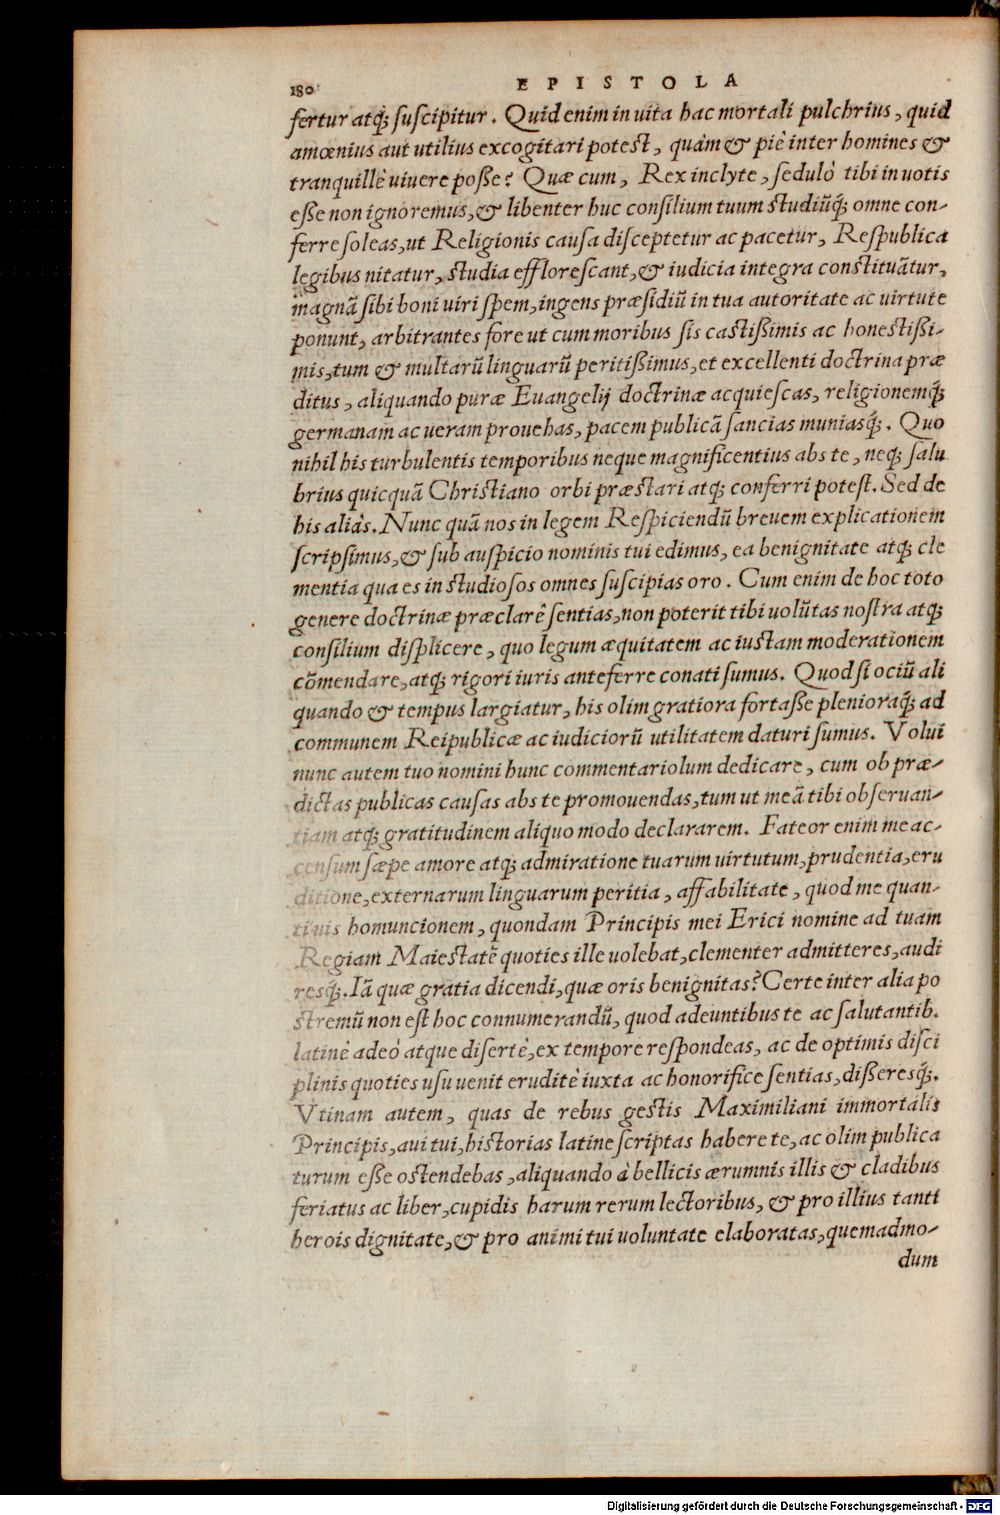 180 EPISTOLA
fertur atq́; ſuſcipitur. Quid enim in uita hac mortali pulchrius, quid
amœnius aut utilius excogitari potest, quàm & piè inter homines &
tranquillè uiuere poſſe? Quæ cum, Rex inclyte, ſedulò tibi in uotis
eſſe non ignoremus, & libenter huc conſilium tuum studiũq́; omne con-
ferre ſoleas, ut Religionis cauſa diſceptetur ac pacetur, Reſpublica
legibus nitatur, studia effloreſcant, & iudicia integra constituãtur,
magnã ſibi boni uiri ſpem, ingens præſidiũ in tua autoritate ac uirtute
ponunt, arbitrantes fore ut cum moribus ſis castiſſimis ac honestiſſi-
mis, tum & multarũ linguarũ peritiſſimus, et excellenti doctrina præ
ditus, aliquando puræ Euangelij doctrinæ acquieſcas, religionemq́;
germanam ac ueram prouehas, pacem publicã ſancias muniasq́;. Quo
nihil his turbulentis temporibus neque magnificentius abs te, neq́; ſalu
brius quicquã Christiano orbi præstari atq́; conferri potest. Sed de
his aliàs. Nunc quã nos in legem Reſpiciendũ breuem explicationem
ſcripſimus, & ſub auſpicio nominis tui edimus, ea benignitate atq́; cle
mentia qua es in studioſos omnes ſuſcipias oro. Cum enim de hoc toto
genere doctrinæ præclarè ſentias, non poterit tibi uolũtas noſtra atq́;
conſilium diſplicere, quo legum æquitatem ac iustam moderationem
cõmendare, atq́; rigori iuris anteferre conati ſumus. Quod ſi ociũ ali
quando & tempus largiatur, his olim gratiora fortaſſe plenioraq́; ad
communem Reipublicæ ac iudiciorũ utilitatem daturi ſumus. Volui
nunc autem tuo nomini hunc commentariolum dedicare, cum ob præ-
dictas publicas cauſas abs te promouendas, tum ut meã tibi obſeruan-
tiam atq́; gratitudinem aliquo modo declararem. Fateor enim me ac-
cenſum ſæpe amore atq́; admiratione tuarum uirtutum, prudentia, eru
ditione, externarum linguarum peritia, affabilitate, quod me quan-
tiuis homuncionem, quondam Principis mei Erici nomine ad tuam
Regiam Maiestatẽ quoties ille uolebat, clementer admitteres, audi
resq́;. Iã quæ gratia dicendi, quæ oris benignitas? Certe inter alia po
stremũ non eſt hoc connumerandũ, quod adeuntibus te ac ſalutantib.
latinè adeò atque diſertè, ex tempore reſpondeas, ac de optimis diſci
plinis quoties uſu uenit eruditè iuxta ac honorifice ſentias, diſſeresq́;.
Vtinam autem, quas de rebus gestis Maximiliani immortalis
Principis, aui tui, historias latine ſcriptas habere te, ac olim publica
turum eſſe ostendebas, aliquando à bellicis ærumnis illis & cladibus
feriatus ac liber, cupidis harum rerum lectoribus, & pro illius tanti
herois dignitate, & pro animi tui uoluntate elaboratas, quemadmo-
dum
Digitalisierung gefördert durch die Deutsche Forschungsgemeinschaft - DFG